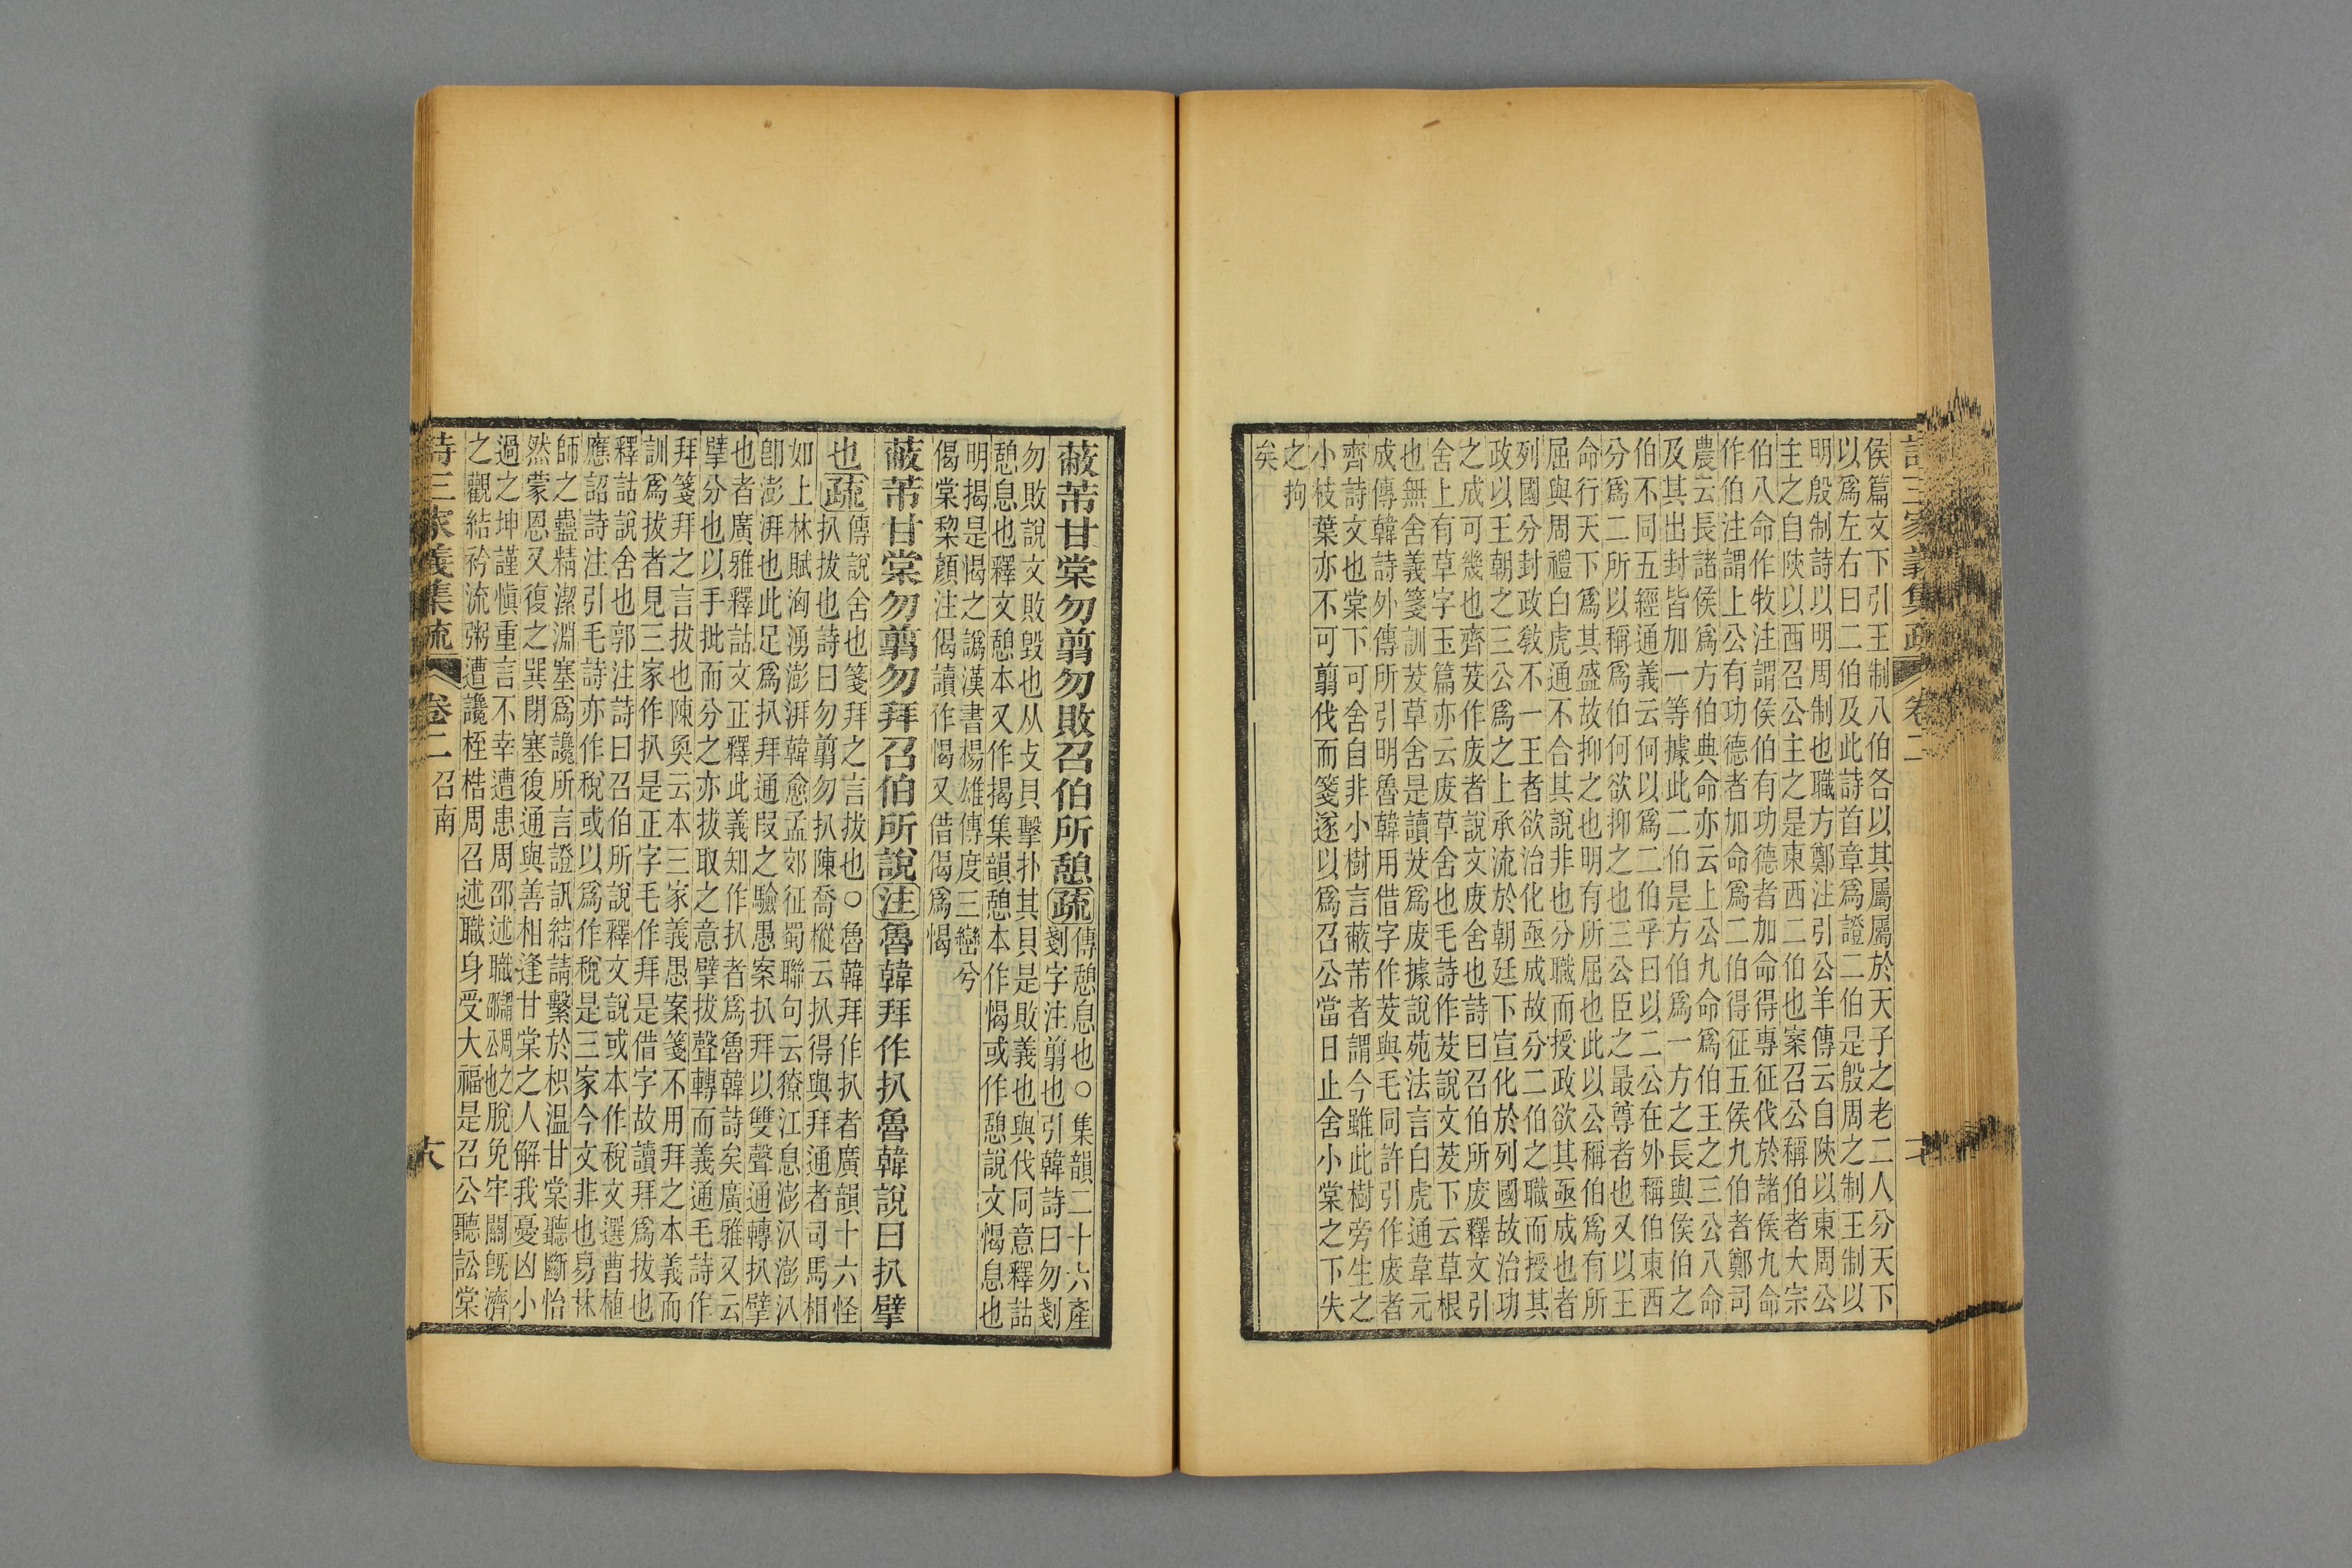 詩三家義集疏 卷二
侯篇文下引王制八伯各以其屬屬於天子之老二人分天下
以爲左右曰二伯及此詩首章爲證二伯是殷周之制王制以
明殷制詩以明周制也職方鄭注引公羊傳云自陝以東周公
主之自陝以西召公主之是東西二伯也案召公稱伯者大宗
伯八命作牧注謂侯伯有功德者加命得專征伐於諸侯九命
作伯注謂上公有功德者加命爲二伯得征五侯九伯者鄭司
農云長諸侯爲方伯典命亦云上公九命爲伯王之三公八命
及其出封皆加一等據此二伯是方伯爲一方之長與侯伯之
伯不同五經通義云何以爲二伯乎曰以二公在外稱伯東西
分爲二所以稱爲伯何欲抑之也三公臣之最尊者也又以王
命行天下爲其盛故抑之也明有所屈也此以公稱伯爲有所
屈與周禮白虎通不合其說非也分職而授政欲其亟成也者
列國分封政敎不一王者欲治化亟成故分二伯之職而授其
政以王朝之三公爲之上承流於朝廷下宣化於列國故治功
之成可幾也齊茇作废者說文废舍也詩曰召伯所废釋文引
舍上有草字玉篇亦云废草舍也毛詩作茇說文茇下云草根
也無舍義箋訓茇草舍是讀茇爲废據說苑法言白虎通韋元
成傳韓詩外傳所引明魯韓用借字作茇與毛同許引作废者
齊詩文也棠下可舍自非小樹言蔽芾者謂今雖此樹旁生之
小枝葉亦不可翦伐而箋遂以爲召公當日止舍小棠之下失
之拘
矣
蔽芾甘棠勿翦勿敗召伯所憩疏傳憩息也○集韻二十六產
剗字注翦也引韓詩曰勿剗
勿敗說文敗毀也从攴貝擊扑其貝是敗義也與伐同意釋詁
憩息也釋文憩本又作揭集韻憩本作愒或作憩說文愒息也
明揭是愒之譌漢書楊雄傳度三巒兮
偈棠黎顏注偈讀作愒又借偈爲愒
蔽芾甘棠勿翦勿拜召伯所說注魯韓拜作扒魯韓說曰扒擘
也疏傳說舍也箋拜之言拔也○魯韓拜作扒者廣韻十六怪
扒拔也詩曰勿翦勿扒陳喬樅云扒得與拜通者司馬相
如上林賦洶湧澎湃韓愈孟郊征蜀聯句云獠江息澎汃澎汃
卽澎湃也此足爲扒拜通叚之驗愚案扒拜以雙聲通轉扒擘
也者廣雅釋詁文正釋此義知作扒者爲魯韓詩矣廣雅又云
擘分也以手批而分之亦拔取之意擘拔聲轉而義通毛詩作
拜箋拜之言拔也陳奐云本三家義愚案箋不用拜之本義而
訓爲拔者見三家作扒是正字毛作拜是借字故讀拜爲拔也
釋詁說舍也郭注詩曰召伯所說釋文說或本作稅文選曹植
應詔詩注引毛詩亦作稅或以爲作稅是三家今文非也易林
師之蠱精潔淵塞爲讒所言證訊結請繫於枳溫甘棠聽斷怡
然蒙恩又復之巽閉塞復通與善相逢甘棠之人解我憂凶小
過之坤謹愼重言不幸遭患周邵述職謂周公之邵公也脫免牢關旣濟
之觀結衿流粥遭讒桎梏周召述職身受大福是召公聽訟棠
詩三家義集疏 卷二 召南 十八